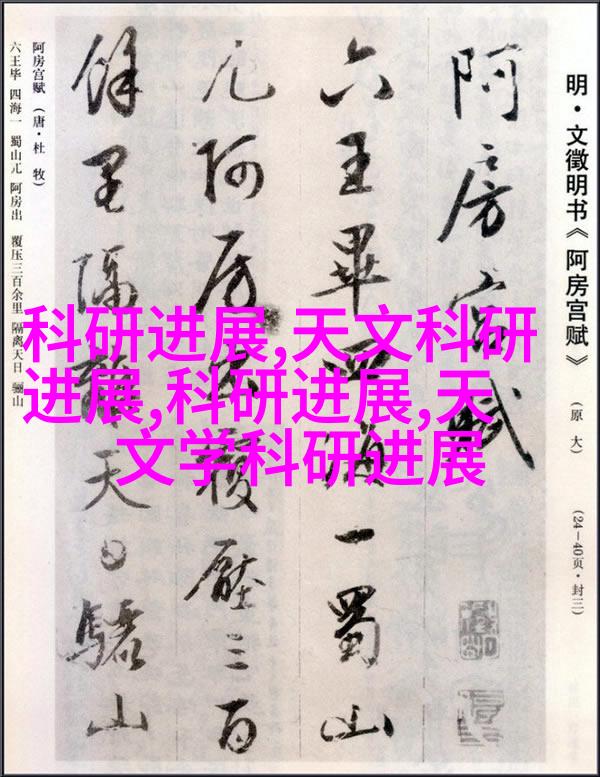 明·文徵明书《阿房宫赋》
（原大）
（24—40页·封三）
阿房宫賦
六王畢四海一蜀山
兀阿房出覆壓三百
餘里隔離天日驪山
阿房宫赋（唐·杜牧）
六王毕 四海一 蜀山兀 阿房出 覆压三百余里 隔离天日 骊山
科研进展,天文科研
进展,科研进展,天
文学科研进展